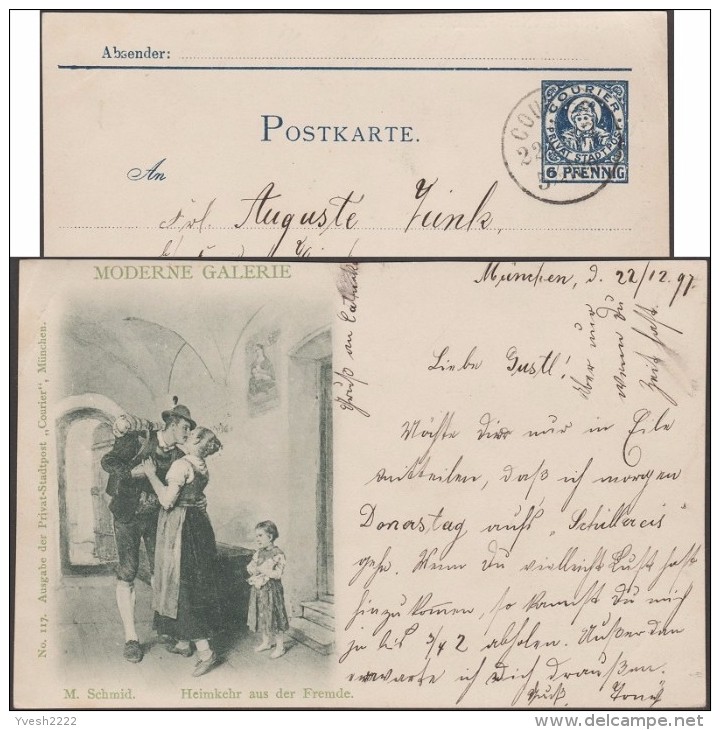 Absender:
POSTKARTE.
COURIER
PRIVAT STADTPOST
6 PFENNIG
COU
22
An
Frl. Auguste
MODERNE GALERIE
No. 117. Ausgabe der Privat-Stadtpost „Courier", München.
M. Schmid. Heimkehr aus der Fremde.
Gruß an
München, d. 22/12.97
Liebe Gustl!
Aber nur
wenn Du
Zeit hast.
Möchte Dir nur in Eile
mitteilen, daß ich morgen
Donnerstag aufs „Schillereis"
gehe. Wenn Du vielleicht Lust hast
hinzukommen, so kannst Du mich
zu bis 3/4 2 abholen. Außerdem
erwarte ich Dich draußen.
Gruß Toni
Yvesh2222
delcampe.net